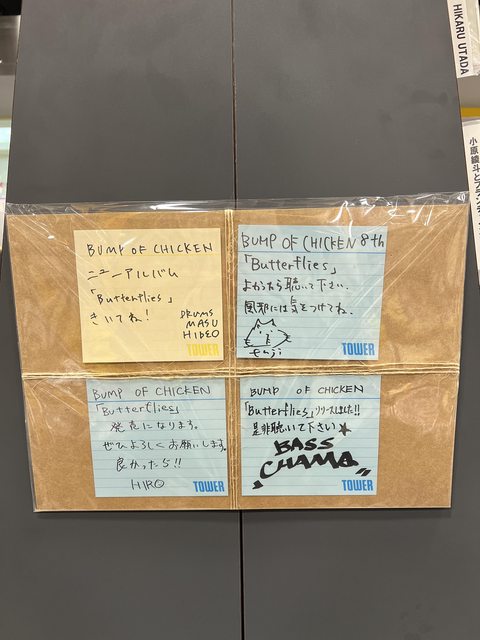 HIKARU UTADA
小原綾斗とフランチ
BUMP OF CHICKEN
ニューアルバム
「Butterflies」
きいてね!
DRUMS
MASU
HIDEO
TOWER
BUMP OF CHICKEN 8th
「Butterflies」
よかったら聴いて下さい.
風邪には気をつけてね.
fuji
TOWER
BUMP OF CHICKEN
「Butterflies」
発売になります。
ぜひよろしくお願いします。
良かったら!!
HIRO
TOWER
BUMP OF CHICKEN
「Butterflies」リリースしました!!
是非聴いて下さい★
BASS
CHAMA
TOWER